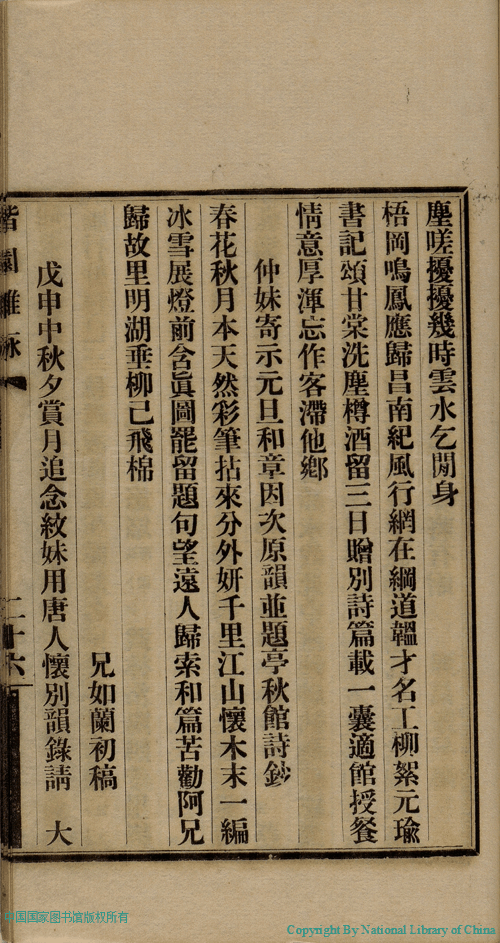 塵嗟擾擾幾時雲水乞閒身
梧岡鳴鳳應歸昌南紀風行網在綱道韞才名工柳絮元瑜
書記頌甘棠洗塵樽酒留三日贈別詩篇載一囊適館授餐
情意厚渾忘作客滯他鄉
仲妹寄示元旦和章因次原韻並題亭秋館詩鈔
春花秋月本天然彩筆拈來分外妍千里江山懷木末一編
冰雪展燈前含眞圖罷留題句望遠人歸索和篇苦勸阿兄
歸故里明湖垂柳已飛棉
兄如蘭初稿
戊申中秋夕賞月追念紋妹用唐人懷別韻錄請 大
偕園雜詠
二十六
中国国家图书馆版权所有
Copyright By National Library of China